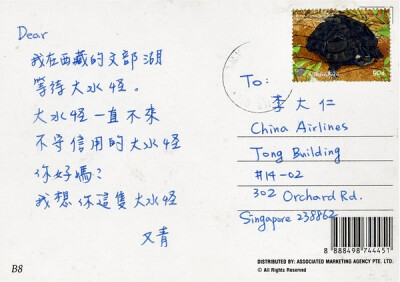 Dear
我在西藏的文部湖
等待大水怪。
大水怪一直不來
不守信用的大水怪
你好嗎?
我想你這隻大水怪
又青
To:
李大仁
China Airlines
Tong Building
#14-02
302 Orchard Rd.
Singapore 238862
8 888498 744451
DISTRIBUTED BY: ASSOCIATED MARKETING AGENCY PTE. LTD.
© All Rights Reserved
B8